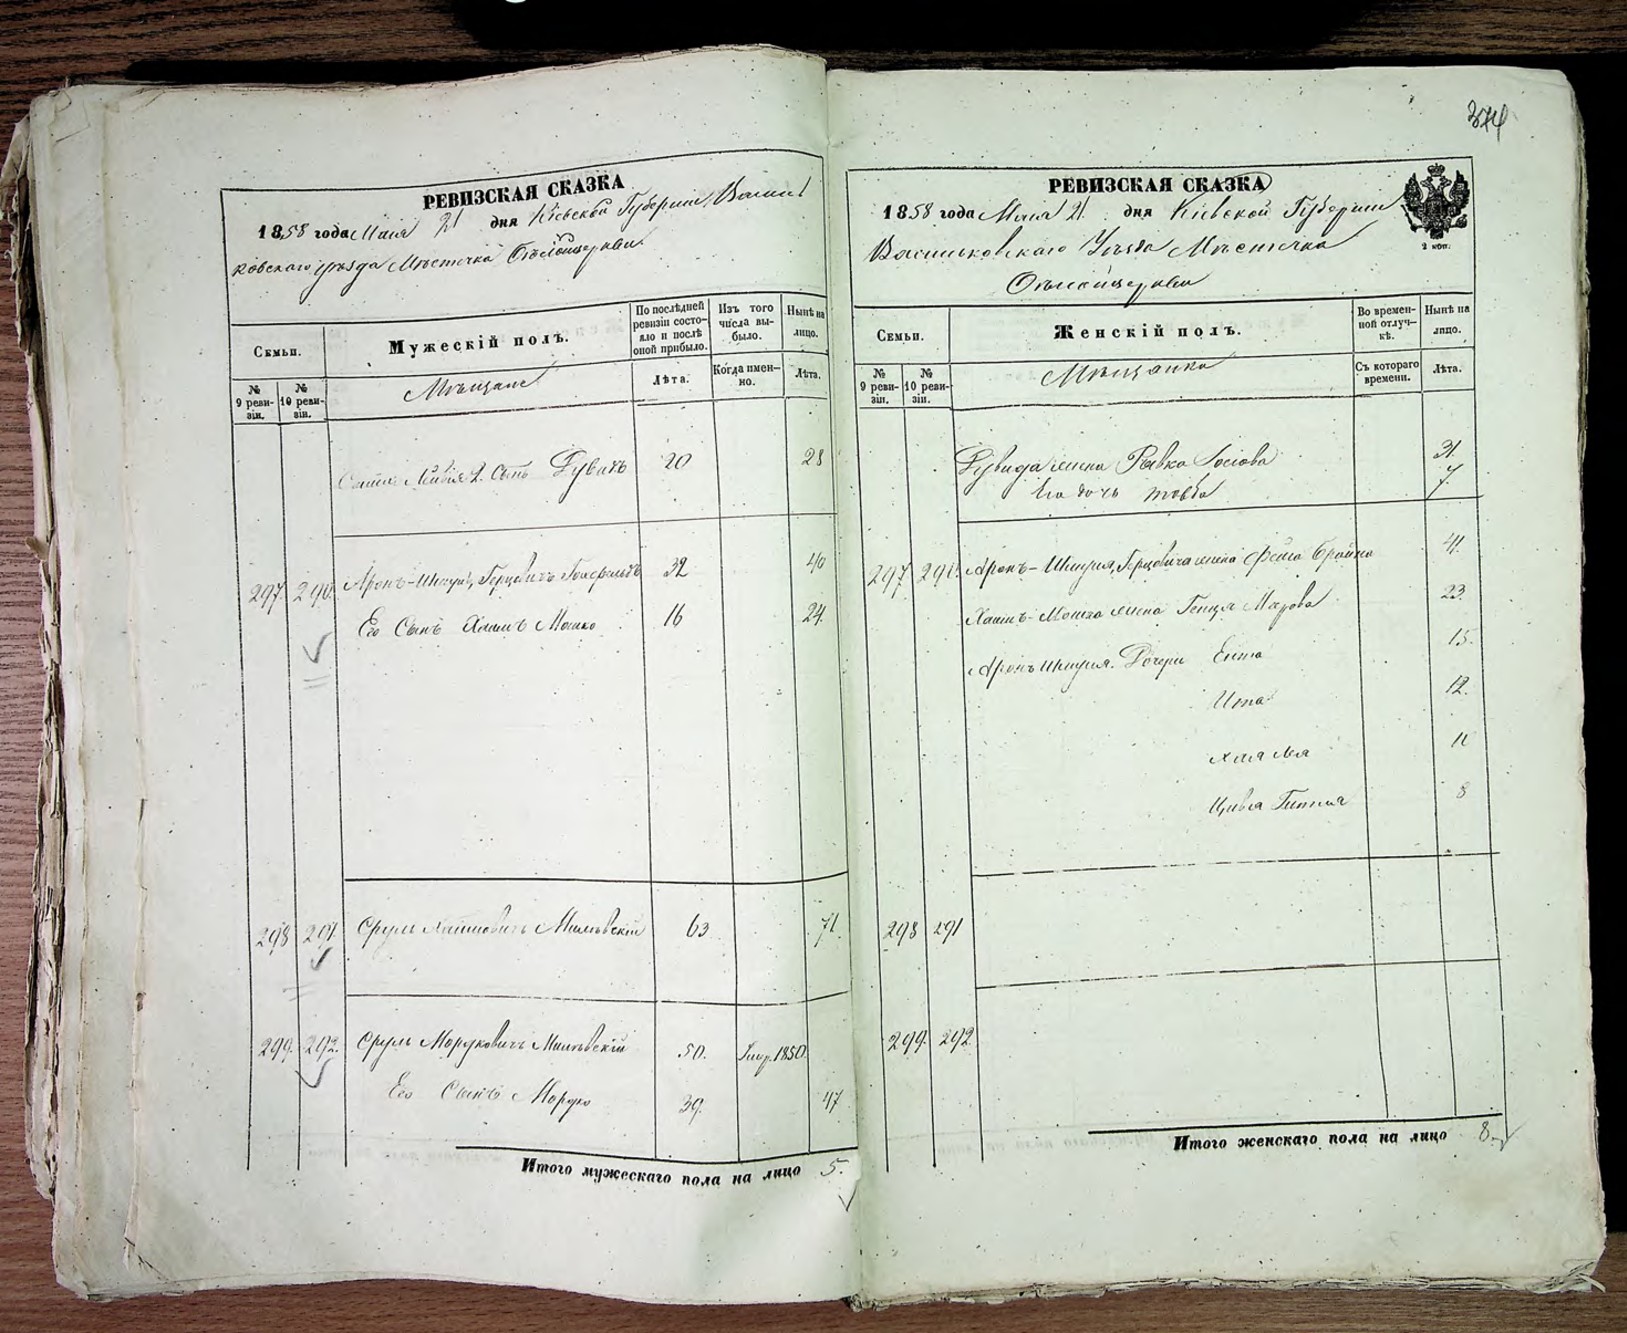 374
РЕВИЗСКАЯ СКАЗКА
1858 года Маия 21 дня Кіевской Губерніи Василь
ковскаго уѣзда Мѣстечка Бѣлойцеркви
Семьи.
Мужескій полъ.
По послѣдней ревизіи состояло и послѣ оной прибыло.
Изъ того числа выбыло.
Нынѣ на лицо.
№ 9 ревизіи.
№ 10 ревизіи.
Мѣщане
Лѣта.
Когда именно.
Лѣта.
2. Сынъ Дувидъ 20 28
297. 290. Аронъ-Шмуль Герцовичъ 32 40
Его Сынъ Хаимъ Мошко 16 24.
298 291 Сруль Хаимовичъ 63 71.
299. 292. Сруль Мордковичъ 50. Умер. 1850.
Его Сынъ Мордко 39. 47
Итого мужескаго пола на лицо 5.
РЕВИЗСКАЯ СКАЗКА
1858 года Маия 21. дня Кіевской Губерніи
Васильковскаго Уѣзда Мѣстечка
Бѣлойцеркви
2 коп.
Семьи.
Женскій полъ.
Во временной отлучкѣ.
Нынѣ на лицо.
№ 9 ревизіи.
№ 10 ревизіи.
Мѣщанки
Съ котораго времени.
Лѣта.
Дувида жена Ривка Іосіова 31.
Его дочь Товба 7.
297 291. Аронъ-Шмуля Герцовича жена Фейга Брайна 41.
Хаимъ-Мошка жена Генця 23.
Аронъ Шмуля Дочери Ента 15.
Ита 12.
Хая Лея 11
Цивья Гитля 8
298 291
299. 292
Итого женскаго пола на лицо 8.